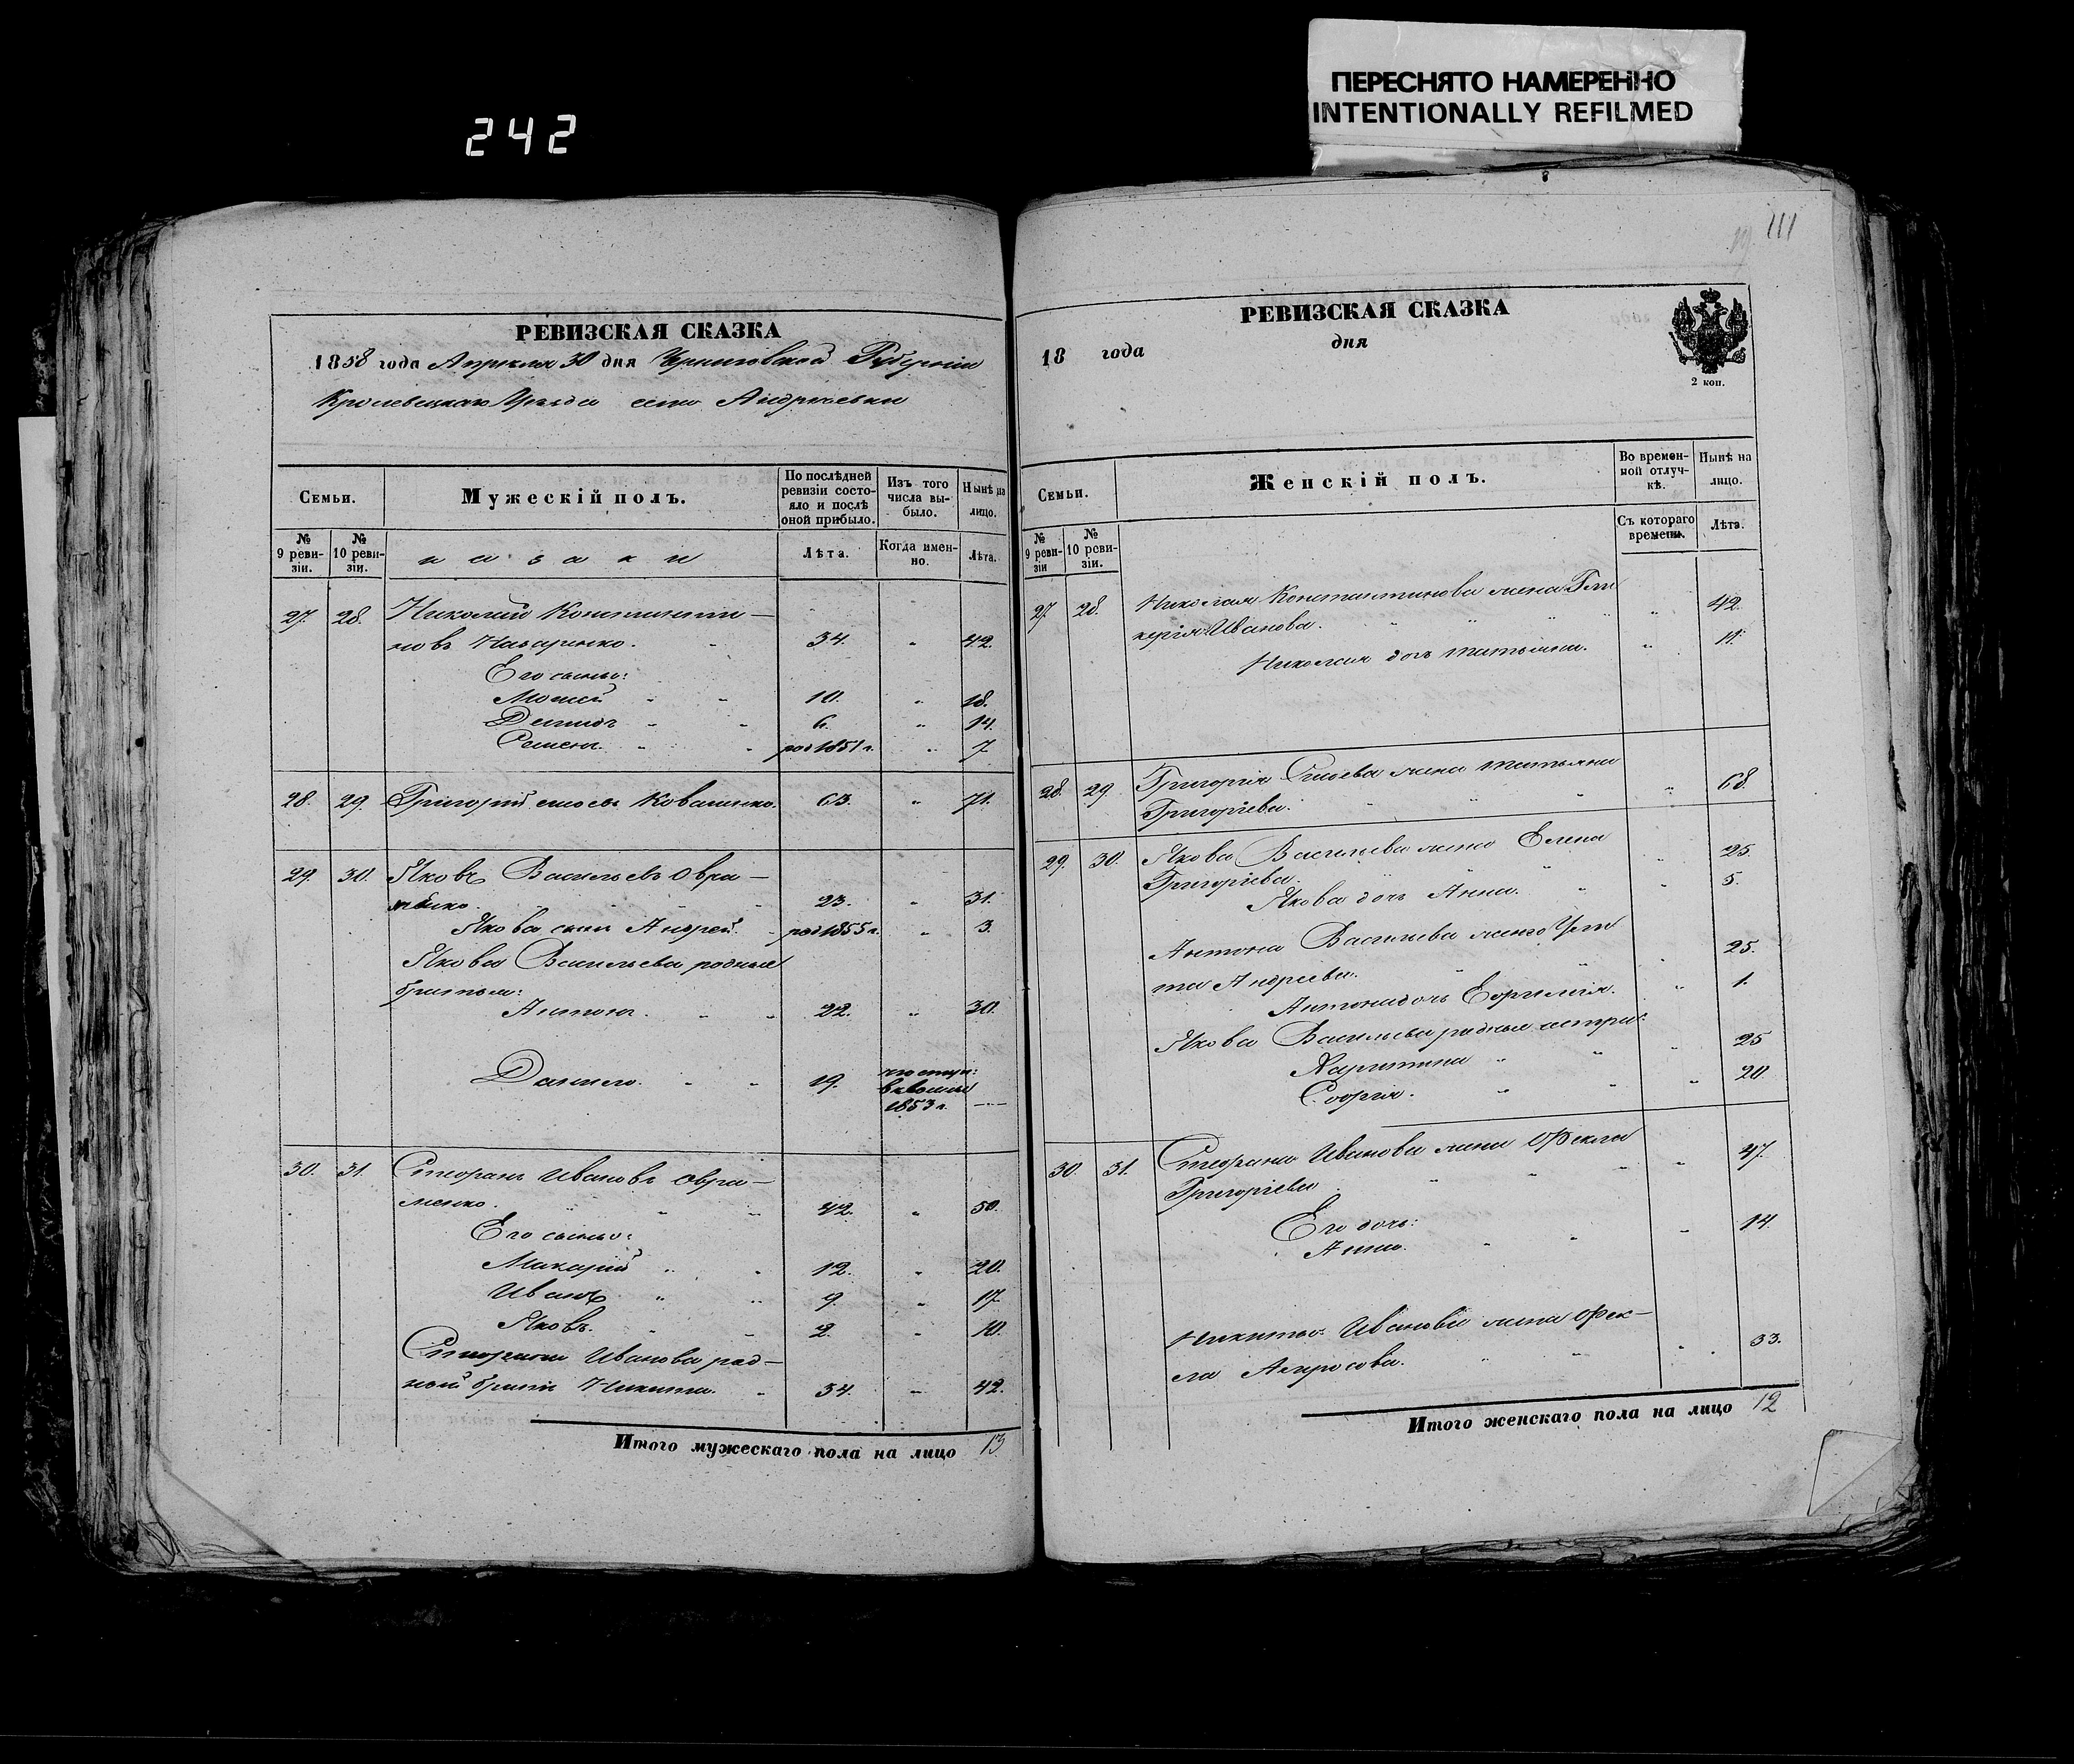 ПЕРЕСНЯТО НАМЕРЕННО
INTENTIONALLY REFILMED
242
111
РЕВИЗСКАЯ СКАЗКА
1858 года Апреля 30 дня Черниговской Губерніи
Кролевецкаго Уезда село Андреевки
Семьи.
Мужескій полъ.
По послѣдней ревизіи состояло и послѣ оной прибыло.
Изъ того числа выбыло.
Нынѣ на лицо.
№ 9 ревизіи.
№ 10 ревизіи.
казаки
Лѣта.
Когда именно.
Лѣта.
27. 28. Николай Константи—
новъ Назаренко. 34. " 42.
Его сыны:
Моисей " " 10. " 18.
Демидъ " " 6. " 14.
Семенъ. " " род 1851 г. " 7.
28. 29. Григорій Коваленко. 63. " 71.
29. 30. Яковъ Васильевъ Авра—
менко. 23. " 31.
Якова сынъ Андрей. род 1855 г. " 3.
Якова Васильева родные
братья:
Антонъ. " " 22. " 30.
Данило. " " 19.
1853 г. —
30. 31. Стефанъ Ивановъ Авра—
менко. " " 42. " 50.
Его сыны:
Макарий " " 12. " 20.
Иванъ " " 9. " 17.
Яковъ. " " 2. " 10.
Стефана Иванова род—
ной братъ Никита. " 34. " 42.
Итого мужескаго пола на лицо 13
РЕВИЗСКАЯ СКАЗКА
18 года дня
2 коп.
Семьи.
Женскій полъ.
Во временной отлучкѣ.
Нынѣ на лицо.
№ 9 ревизіи
№ 10 ревизіи.
Съ котораго времени.
Лѣта.
27. 28. Николая Константинова жена Гли
керія Иванова. " " " 42.
Николая дочь Татьяна. " 11.
28. 29. Григорія жена Татьяна
Григоріева. " " " 68.
29. 30. Якова Васильева жена Елена
Григоріева. " " 25.
Якова дочь Анна. " " 5.
Антона Васильева жена Ули
та Андреева. " " 25.
Антона дочь " 1.
Якова Васильева родные сестры:
Харитина " " " 25
Софія. " " " 20.
30. 31. Стефана Иванова жена Фекла
Григоріева " " " 47.
Его дочь:
Анна. " " " 14.
Никиты Иванова жена Фек—
ла Амросова. " " " 33.
Итого женскаго пола на лицо 12